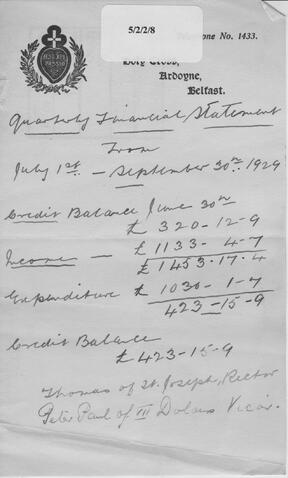 5/2/2/8
Telephone No. 1433.
Holy Cross,
Ardoyne,
Belfast.
Quarterly Financial Statement
From
July 1st - September 30th 1929
Credit Balance June 30th
£ 320-12-9
Income - £ 1133-4-7
£ 1453-17-4
Expenditure £ 1030-1-7
423-15-9
Credit Balance
£ 423-15-9
Thomas of St. Joseph, Rector
Peter Paul of VII Dolours Vicar.